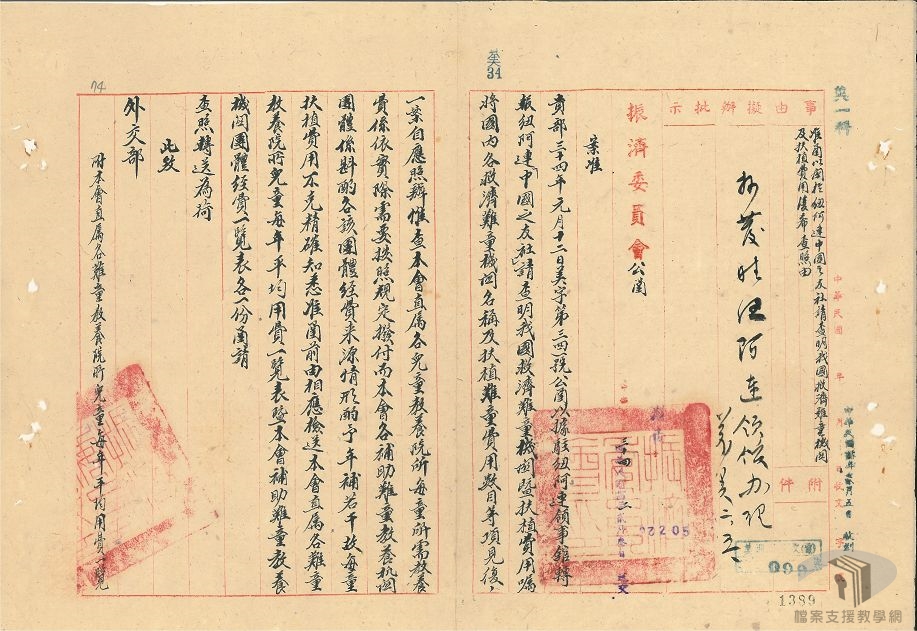 事由擬辦批示
附件
准函以關於紐阿連中國之友社請查明我國救濟難童機關
及扶植費用復希查照由
振濟委員會公函
案准
貴部三十四年元月十二日美字第三四一號公函以據駐紐阿連領事館轉
報紐阿連中國之友社請查明我國救濟難童機關暨扶植費用囑
將國內各救濟難童機關名稱及扶植難童費用數目等項見復、
34
02205
099
1389
一案自應照辦惟查本會直屬各兒童教養院所每童所需教養
費係依實際需要按照規定撥付而本會各補助難童教養機關
團體係斟酌各該團體經費來源情形酌予年補若干故每童
扶植費用不克精確知悉准函前由相應檢送本會直屬各難童
教養院所兒童每年平均用費一覽表暨本會補助難童教養
機關團體經費一覽表各一份函請
查照轉送為荷
此致
外交部
附本會直屬各難童教養院所兒童每年平均用費一覽
74
檔案支援教學網